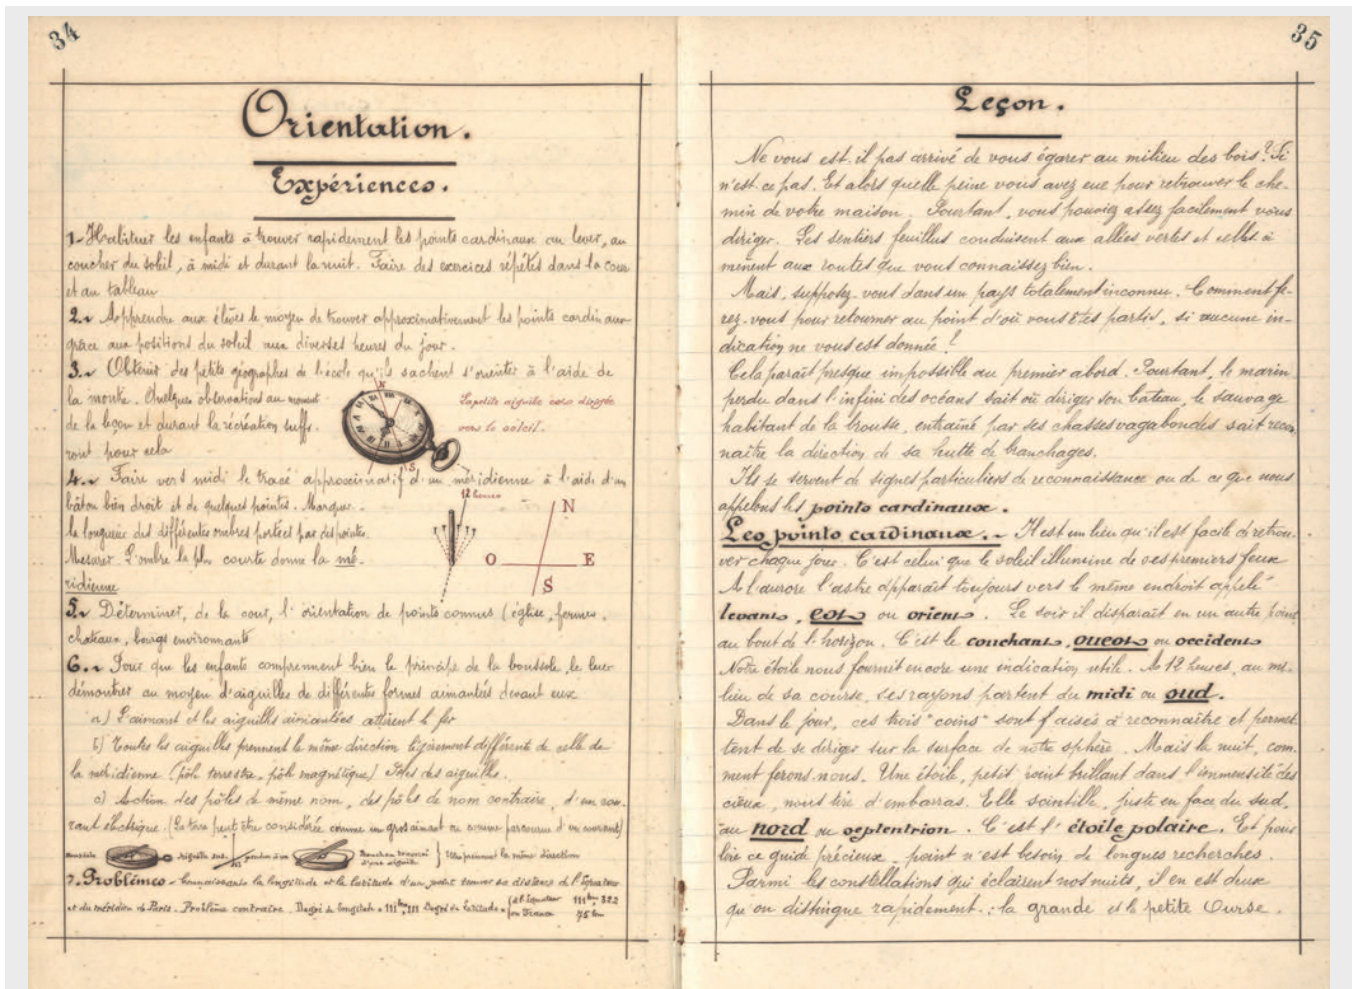 34
Orientation.
Expériences.
1.- Habituer les enfants à trouver rapidement les points cardinaux au lever, au
coucher du soleil, à midi et durant la nuit. Faire des exercices répétés dans la cour
et au tableau
2.- Apprendre aux élèves le moyen de trouver approximativement les points cardinaux
grâce aux positions du soleil aux diverses heures du jour.
3.- Obtenir des petits géographes de l'école qu'ils sachent s'orienter à l'aide de
la montre. Quelques observations au moment
de la leçon et durant la récréation suffi-
ront pour cela
N
S
La petite aiguille sera dirigée
vers le soleil.
4.- Faire vers midi le tracé approximatif d'un méridienne à l'aide d'un
bâton bien droit et de quelques pointes. Marquer
la longueur des différentes ombres portées par des pointes.
Mesurer. L'ombre la plus courte donne la mé-
ridienne
12 heures
N
O E
S
5.- Déterminer, de la cour, l'orientation de points connus (église, fermes,
chateaux, bourgs environnants
6.- Pour que les enfants comprennent bien le principe de la boussole, le leur
démontrer au moyen d'aiguilles de différentes formes aimantées devant eux
a) L'aimant et les aiguilles aimantées attirent le fer
b) Toutes les aiguilles prennent la même direction légèrement différente de celle de
la méridienne (pôle terrestre, pôle magnétique) Pôles des aiguilles.
c) Action des pôles de même nom, des pôles de nom contraire, d'un cou-
rant électrique. (La terre peut être considérée comme un gros aimant ou comme parcourue d'un courant)
Boussole Aiguille sur Bouchon traversé d'une aiguille } Elles prennent la même direction
7.- Problèmes - Connaissant la longitude et la latitude d'un point trouver sa distance de l'Equateur
et du méridien de Paris. Problème contraire. Degré de longitude = 111km,111 Degré de latitude = { à l'Equateur 111km,322
en France 75 km
35
Leçon.
Ne vous est-il pas arrivé de vous égarer au milieu des bois? Si
n'est-ce pas. Et alors quelle peine vous avez eue pour retrouver le che-
min de votre maison. Pourtant, vous pouviez assez facilement vous
diriger. Les sentiers feuillus conduisent aux allées vertes et celles-ci
mènent aux routes que vous connaissez bien.
Mais, supposez-vous dans un pays totalement inconnu. Comment fe-
rez-vous pour retourner au point d'où vous êtes partis, si aucune in-
dication ne vous est donnée!
Cela paraît presque impossible au premier abord. Pourtant, le marin
perdu dans l'infini des océans sait où diriger son bateau, le sauvage
habitant de la brousse, entraîné par ses chasses vagabondes sait recon-
naître la direction de sa hutte de branchages.
Ils se servent de signes particuliers de reconnaissance ou de ce que nous
appelons les points cardinaux.
Les points cardinaux.- Il est un lieu qu'il est facile de retrou-
ver chaque jour. C'est celui que le soleil illumine de ses premiers feux
A l'aurore l'astre apparaît toujours vers le même endroit appelé
levant, est ou orient. Le soir il disparaît en un autre point
au bout de l'horizon. C'est le couchant, ouest ou occident
Notre étoile nous fournit encore une indication utile. A 12 heures, au mi-
lieu de sa course, ses rayons partent du midi ou sud.
Dans le jour, ces trois "coins" sont faisés à reconnaître et permet-
tent de se diriger sur la surface de notre sphère. Mais la nuit, com-
ment ferons-nous. Une étoile, petit point brillant dans l'immensité des
cieux, nous tire d'embarras. Elle scintille, juste en face du sud,
au nord ou septentrion. C'est l'étoile polaire. Et pour
lire ce guide précieux, point n'est besoin de longues recherches.
Parmi les constellations qui éclairent nos nuits, il en est deux
qu'on distingue rapidement: la grande et la petite Ourse.